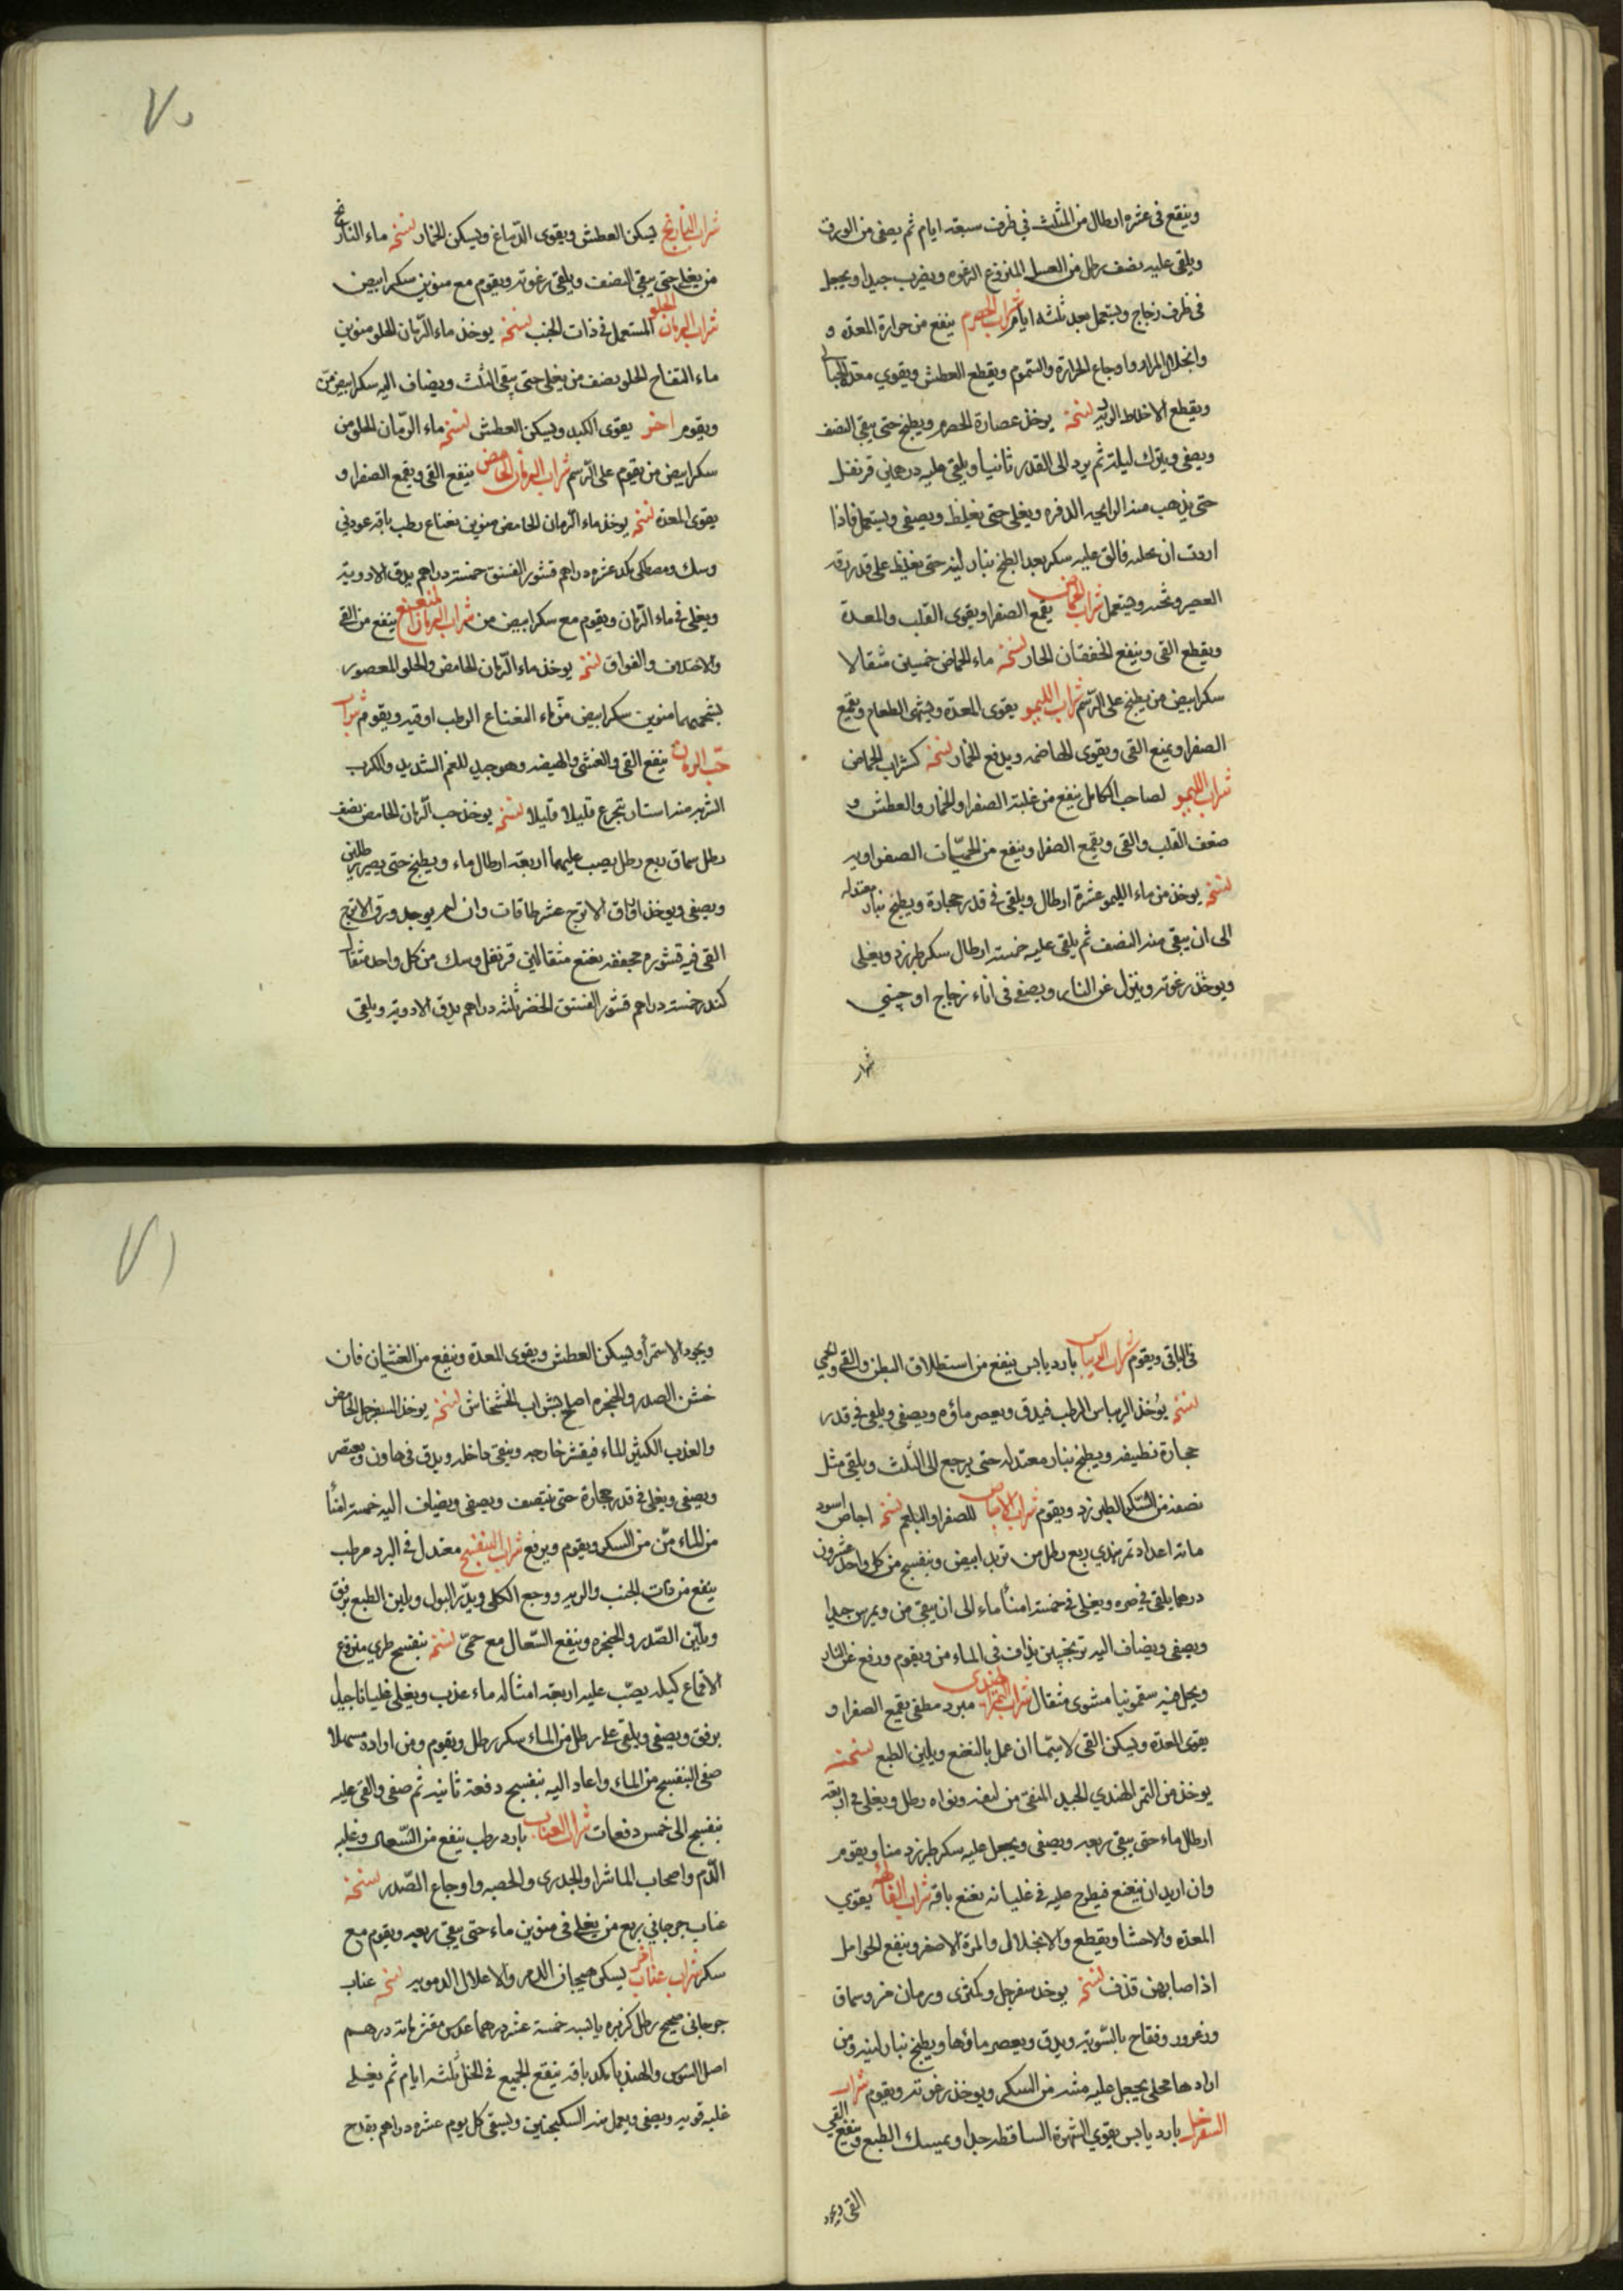 وينقع في عشره ارطال من المثلث في ظرف سبعه ايام ثم يصفى من الورق
ويلقى عليه نصف رطل من العسل المنزوع الرغوه ويضرب جيدا ويجعل
في ظرف زجاج ويستعمل بعد ثلثه ايام شراب الحصرم ينفع من حرارة المعده و
وانحلال المرار واوجاع الحرارة والسموم ويقطع العطش ويقوي معدة الحبالى
ويقطع الاخلاط الرديه نسخته يوخذ عصارة الحصرم ويطبخ حتى يبقى النصف
ويصفى ويترك ليلة ثم يرد الى القدر ثانيا ويلقى عليه درهمي قرنفل
حتى يذهب منه الرايحه الدفره ويغلى حتى يغلظ ويصفى ويستعمل فاذا
اردت ان تحليه فالق عليه سكر بعد الطبخ بنار لينه حتى يغلظ على قدر رقه
العصير وثخنه ويستعمل شراب الحماض يقمع الصفرا ويقوى القلب والمعدة
ويقطع القى وينفع الخفقان الحار نسخته ماء الحماض خمسين مثقالا
سكر ابيض من يطبخ على الرسم شراب الليمو يقوى المعدة ويشهى الطعام ويقمع
الصفرا ويمنع القى ويقوى الهاضمه ويدفع الخمار نسخته كشراب الحماض
شراب الليمو لصاحب الكامل ينفع من غلبة الصفرا والخمار والعطش و
ضعف القلب والقى ويقمع الصفرا وينفع من الحميات الصفراويه
نسخته يوخذ من ماء الليمو عشرة ارطال ويلقى في قدر حجارة ويطبخ بنار معتدله
الى ان يبقى منه النصف ثم يلقى عليه خمسة ارطال سكر طبرزد ويغلى
ويوخذ رغوته وينزل عن النار ويصفى في اناء زجاج او چيني
شراب
٧٠
شراب النارنج يسكن العطش ويقوى الدماغ ويسكن الخمار نسخته ماء النارنج
من يغلى حتى يبقى النصف ويلقى رغوته ويقوم مع منوين سكر ابيض
شراب الرمان الحلو المستعمل في ذات الجنب نسخته يوخذ ماء الرمان الحلو منوين
ماء التفاح الحلو نصف من يغلى حتى يبقى الثلث ويضاف اليه سكر ابيض من
ويقوم اخر يقوى الكبد ويسكن العطش نسخته ماء الرمان الحلو من
سكر ابيض من يقوم على الرسم شراب الرمان الحامض ينفع القى ويقمع الصفرا و
يقوى المعدة نسخته يوخذ ماء الرمان الحامض منوين نعناع رطب باقه عود ني
وسك ومصطكى كد عشره دراهم قشور الفستق خمسة دراهم يدق الادويه
ويغلى في ماء الرمان ويقوم مع سكر ابيض من شراب الرمان المنعنع ينفع من القى
والاختلاف والفواق نسخته يوخذ ماء الرمان الحامض والحلو المعصور
بشحمهما منوين سكر ابيض من ماء النعناع الرطب اوقيه ويقوم شراب
حب الرمان ينفع القى والغشى والهيضه وهو جيد للغم الشديد والكرب
الشربه منه استار يتجرع قليلا قليلا نسخته يوخذ حب الرمان الحامض نصف
رطل سماق ربع رطل يصب عليهما اربعة ارطال ماء ويطبخ حتى يصير رطلين
ويصفى ويوخذ اوراق الاترج عشر طاقات وان لم يوجد ورق الاترج
القى فيه قشوره مجففه نعنع مثقالين قرنفل وسك من كل واحد مثقال
كندر خمسة دراهم قشور الفستق الخضر ثلثه دراهم يدق الادوية ويلقى
في الباقي ويقوم شراب الريباس بارد يابس ينفع من استطلاق البطن والقى والحمى
نسخته يوخذ الريباس الرطب فيدق ويعصر ماؤه ويصفى ويلقى في قدر
حجارة نظيفه ويطبخ بنار معتدله حتى يرجع الى الثلث ويلقى مثل
نصفه من السكر الطبرزد ويقوم شراب الاجاص للصفرا والبلغم نسخته اجاص اسود
ماته اعداد تمر هندي ربع رطل من تربد ابيض وبنفسج من كل واحد عشرون
درهما يلقى في صره ويغلى في خمسة امناء ماء الى ان يبقى من ويمرس جيدا
ويصفى ويضاف اليه ترنجبين يذاف في الماء من ويقوم ورفع عن النار
ويجعل فيه سقمونيا مشوى مثقال شراب التمر الهندى مبرد مطفى يقمع الصفرا و
يقوى المعدة ويسكن القى لا سيما ان عمل بالنعنع ويلين الطبع نسخته
يوخذ من التمر الهندي الجيد المنقى من ليفه ونواه رطل ويغلى في اربعه
ارطال ماء حتى يبقى ربعه ويصفى ويجعل عليه سكر طبرزد منا ويقوم
وان اريد ان ينعنع فيطرح عليه في غليانه نعنع باقه شراب الفاكهه يقوي
المعده والاحشا ويقطع والانحلال والمرة الاصفر وينفع الحوامل
اذا اصابهن قذف نسخته يوخذ سفرجل وكمثرى ورمان مز وسماق
وزعرور وتفاح بالسويه ويدق ويعصر ماؤها ويطبخ بنار لينه ومن
ارادها محلى يجعل عليه مثله من السكر ويوخذ رغوته ويقوم شراب
السفرجل بارد يابس يقوي الشهوة الساقطه جدا ويمسك الطبع وينفع القي
القى ويجود
٧١
ويجود الاستمرا ويسكن العطش ويقوى المعدة وينفع من الغثيان فان
خشن الصدر والحنجره اصلح بشراب الخشخاش نسخته يوخذ السفرجل الحامض
والعذب الكثير الماء فيقشر خارجه وينقى داخله ويدق في هاون ويعتصر
ويصفى ويغلى في قدر حجارة حتى ينتصف ويصفى ويضاف اليه خمسة امناء
من الماء من من السكر ويقوم ويرفع شراب البنفسج معتدل في البرد مرطب
ينفع من ذات الجنب والريه ووجع الكلى ويدر البول ويلين الطبع برفق
ويلين الصدر والحنجره وينفع السعال مع حمى نسخته بنفسج طري منزوع
الاقماع كيله يصب عليه اربعة امثاله ماء عذب ويغلى غليانا جيدا
برفق ويصفى ويلقى على رطل من الماء سكر رطل ويقوم ومن اراده مسهلا
صفى البنفسج من الماء واعاد اليه بنفسج دفعة ثانيه ثم صفى والقى عليه
بنفسج الى خمس دفعات شراب العناب بارد رطب ينفع من السعال وغلبه
الدم واصحاب الماشرا والجدرى والحصبه واوجاع الصدر نسخته
عناب جرجاني ربع من يغلى في منوين ماء حتى يبقى ربعه ويقوم مع
سكر شراب عناب اخر يسكن هيجان الدم والاعلال الدمويه نسخته عناب
جرجاني صحيح رطل كزبره يابسه خمسة عشر درهما عدس مقشر ماته درهم
اصل السوس والهندبا كد باقه ينقع الجميع في الخل ثلثه ايام ثم يغلى
غليه قويه ويصفى ويعمل منه السكنجبين ويسقى كل يوم عشره دراهم بقدح